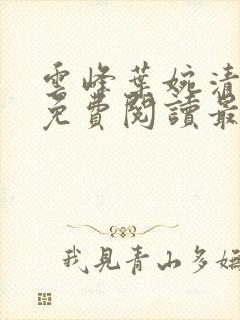 雲峰葉婉清
免費閱讀最
我見青山多嫵